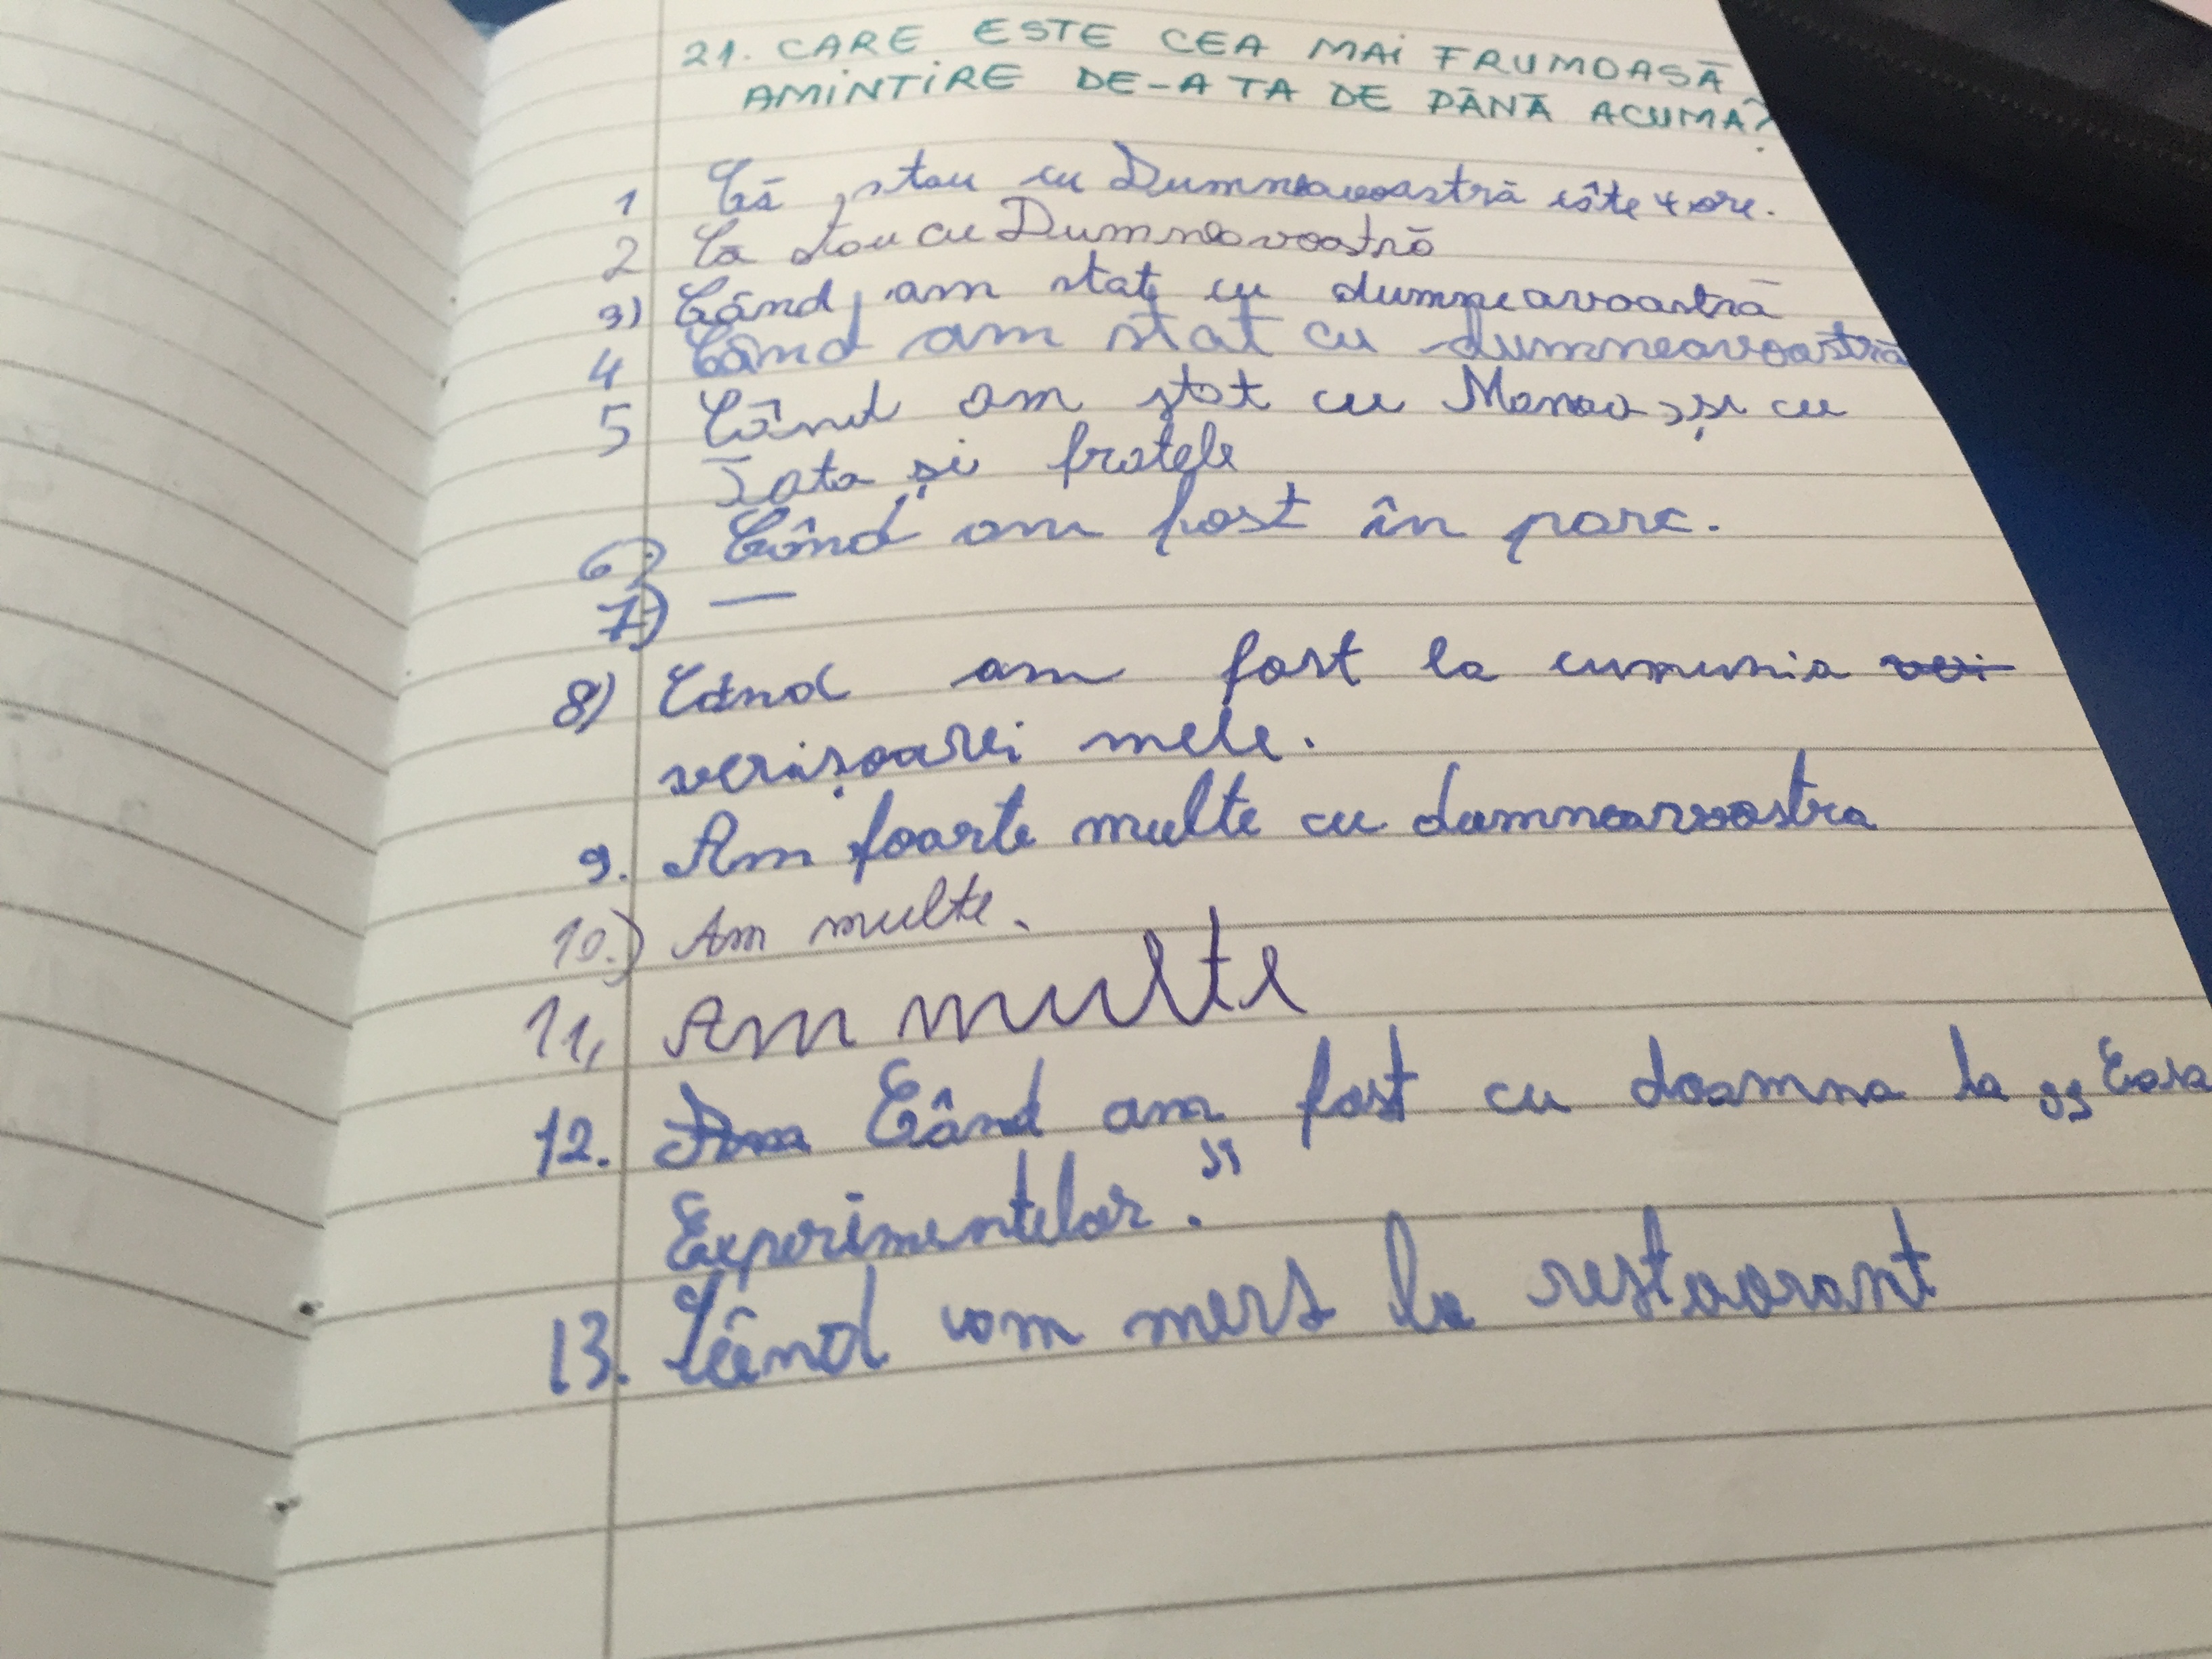 21. CARE ESTE CEA MAI FRUMOASĂ
AMINTIRE DE-A TA DE PĂNĂ ACUMA?
1 Că stau cu Dumneavoastră câte 4 ore.
2 Ca stau cu Dumneavoastră
3) Când am stat cu dumneavoastră
4 Când am stat cu dumneavoastră
5 Când am stat cu și cu
Tata și fratele
6) Când am fost în parc.
7) —
8) Când am fost la cununia
verișoarei mele.
9. Am foarte multe cu dumneavoastra
10.) Am multe.
11, Am multe
12. Când am fost cu doamna la „Casa
Experimentelor."
13. Când am mers la restaorant